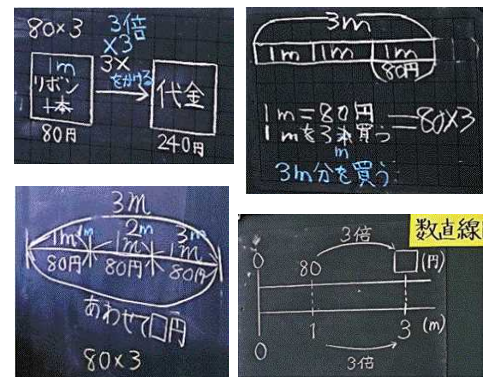 80×3
3倍
×3
3×
をかける
1m
リボン
1本
代金
80円
240円
3m
1m 1m 1m
80円
1m=80円
1mを3本買う
=80×3
m
3m分を買う
3m
1m 2m 3m
1m 1m
80円 80円 80円
あわせて□円
80×3
数直線
3倍
0 80 □(円)
0 1 3 (m)
3倍